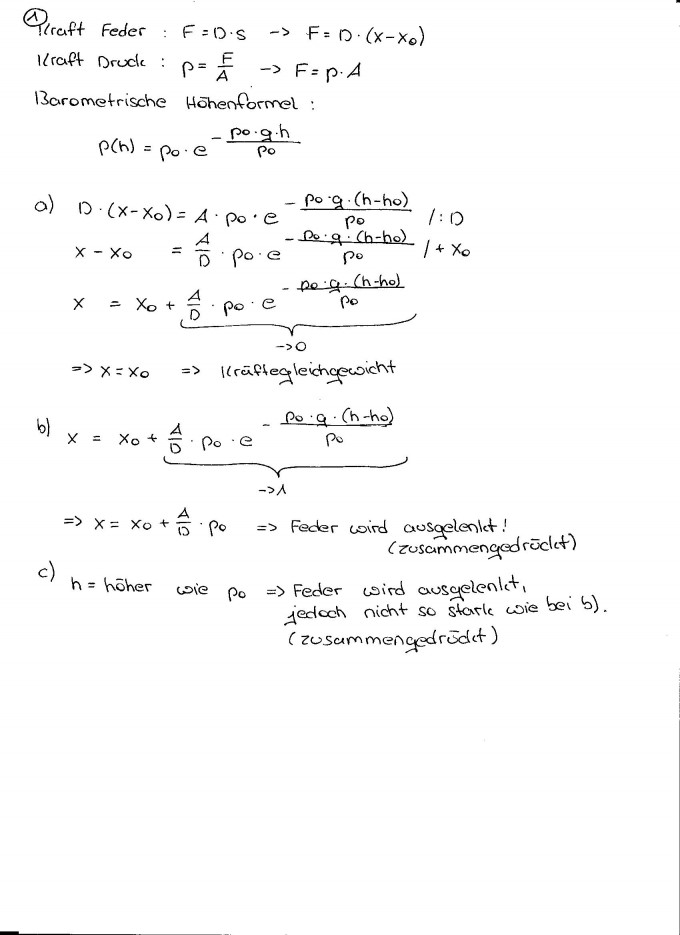 ①
Kraft Feder : F = D · s -> F = D · (x-x₀)
Kraft Druck : p = F/A -> F = p · A
Barometrische Höhenformel :
p(h) = p₀ · e^(- p₀·g·h / p₀)
a) D · (x-x₀) = A · p₀ · e^(- p₀·g·(h-h₀) / p₀) /:D
x - x₀ = A/D · p₀ · e^(- p₀·g·(h-h₀) / p₀) / + x₀
x = x₀ + A/D · p₀ · e^(- p₀·g·(h-h₀) / p₀)
->0
=> x = x₀ => Kräftegleichgewicht
b) x = x₀ + A/D · p₀ · e^(- p₀·g·(h-h₀) / p₀)
->1
=> x = x₀ + A/D · p₀ => Feder wird ausgelenkt!
(zusammengedrückt)
c) h = höher wie p₀ => Feder wird ausgelenkt,
jedoch nicht so stark wie bei b).
(zusammengedrückt)